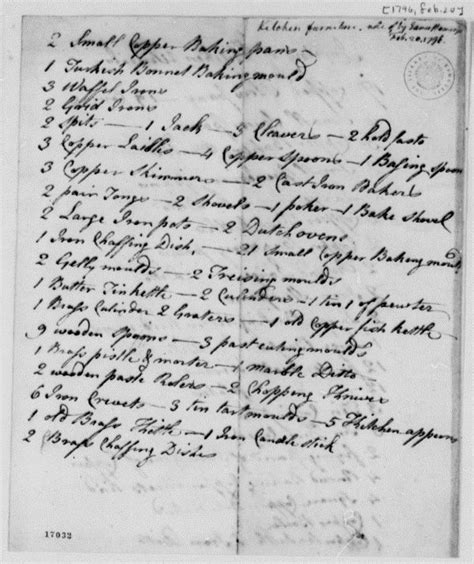 [1796, Feb. 20]
Kitchen furniture
Feb. 20. 1796.
2 Small Copper Baking pans
1 Turkish Bonnet Baking mould
3 Waffel Irons
2 Grid Irons
2 Spits — 1 Jack — 3 Cleavers — 2 hold fasts
3 Copper Laidles — 4 Copper Spoons — 1 Basing Spoon
3 Copper Skimmers — 2 Cast Iron Bakers
2 pair Tongs — 2 Shovels — 1 poker — 1 Bake Shovel
2 Large Iron pots — 2 Dutch ovens
1 Iron Chaffing Dish, — 21 Small Copper Baking moulds
2 Gelly moulds — 2 Freising moulds
1 Butter Tin kettle — 2 Culinders — 1 tin 1 of pewter
1 Brass Culinder 2 Graters — 1 old Copper fish kettle
9 wooden Spoons — 3 past cuting moulds
1 Brass pistle & morter — 1 marble Ditto
2 wooden paste Rolers — 2 Chopping Knives
6 Iron Crevets — 3 tin tart moulds — 5 Kitchen apperns
1 old Brass Kettle — 1 Iron Candle stick
2 Brass Chaffing Dishes
17032